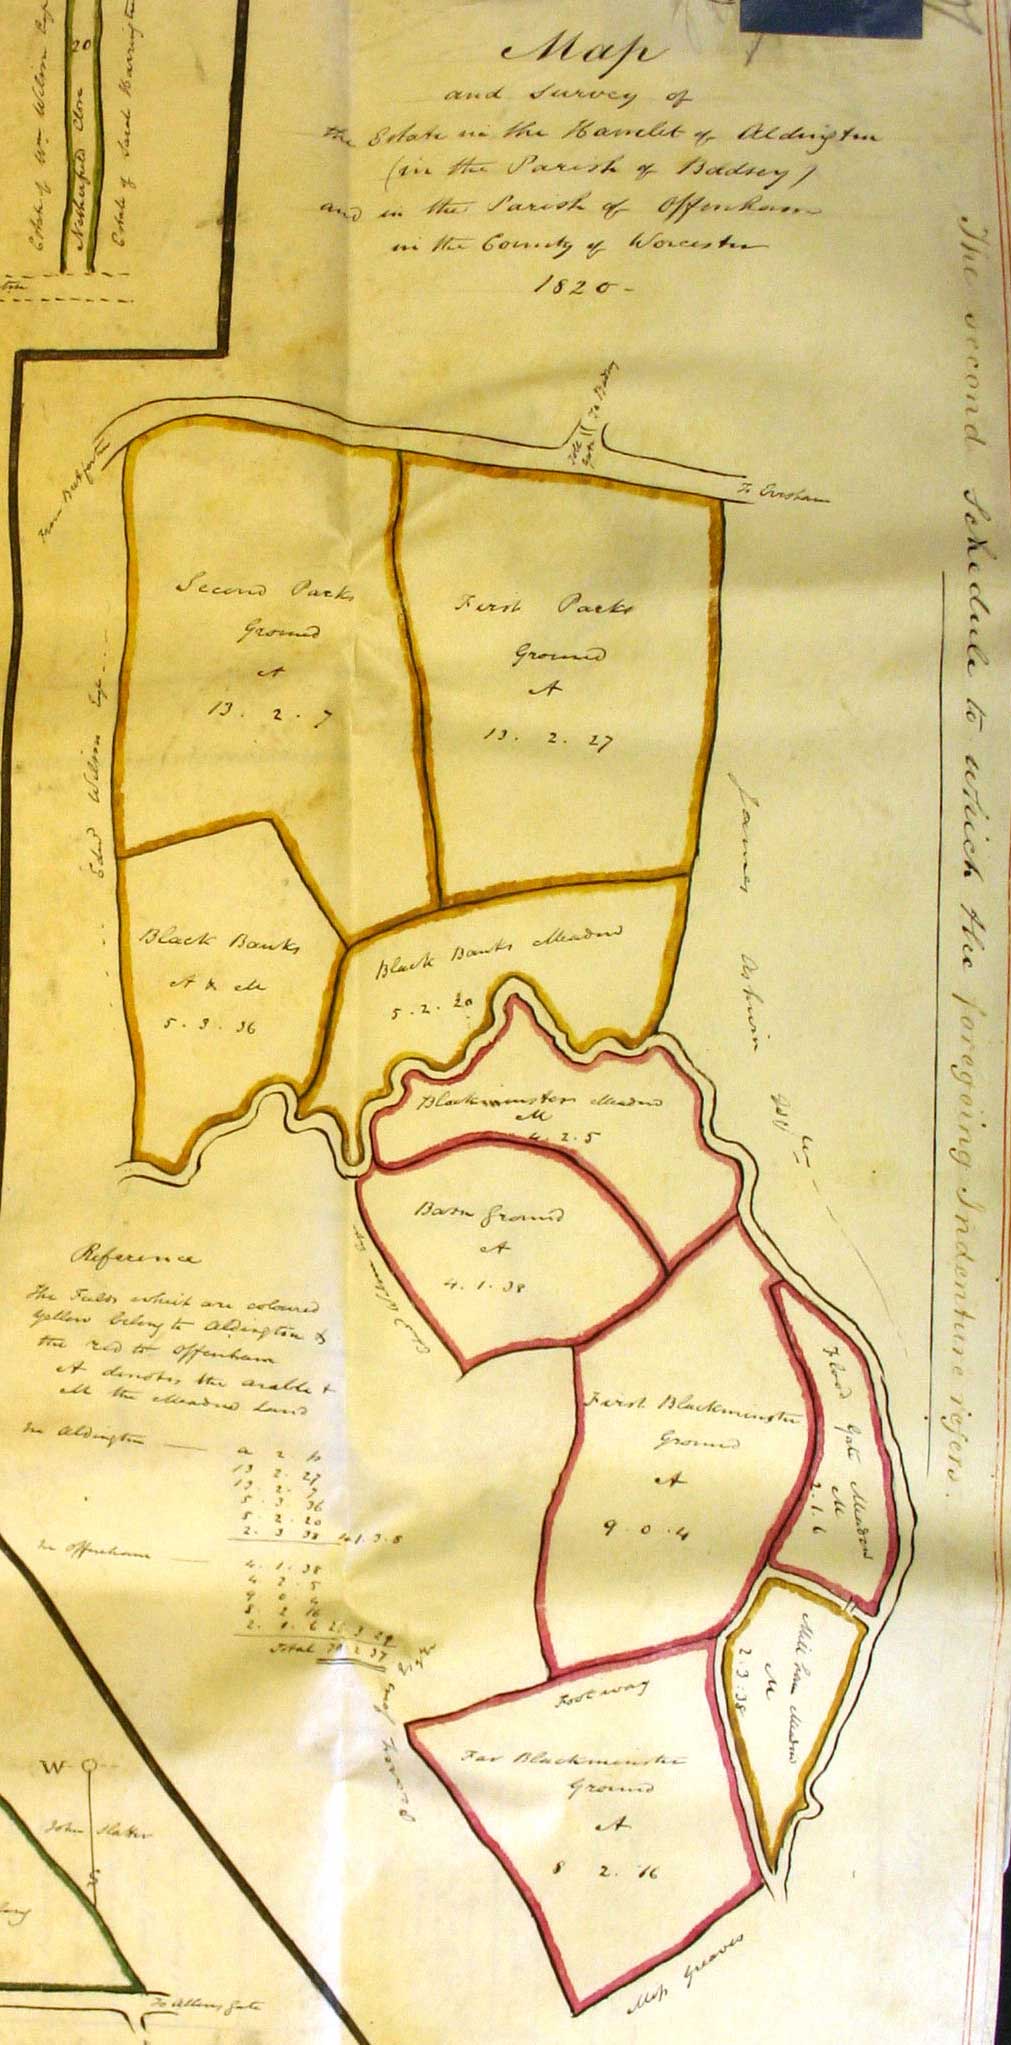 Map
and Survey of
the Estate in the Hamlet of Aldington
(in the Parish of Badsey)
and in the Parish of Offenham
in the County of Worcester
1820 -
Estate of Wm Wilson Esqr
20
Netherfield Close
Estate of Sarah Harrington
The second Schedule to which the foregoing Indenture refers.
To Badsey
Toll Gate
To Evesham
Second Parks
Ground
A
13 . 2 . 7
First Parks
Ground
A
13 . 2 . 27
Edwd Wilson Esqr
James Ashwin
Esqr
Black Banks
A & M
5 . 3 . 36
Black Banks Meadow
5 . 2 . 20
Blackminster Meadow
M
4 . 2 . 5
Barn Ground
A
4 . 1 . 38
Reference
The Fields which are coloured
Yellow belong to Aldington &
the red to Offenham
A denotes the arable &
M the Meadow Land
In Aldington
a r p
13 2 27
13 2 7
5 3 36
5 2 20
2 . 3 38 41 . 3 . 8
In Offenham
4 . 1 . 38
4 2 . 5
9 0 . 4
8 2 16
2 . 1 . 6 28 3 29
Total 70 2 37
First Blackminster
Ground
A
9 . 0 . 4
Flood Gate Meadow
M
2 . 1 . 6
Mill Ham Meadow
M
2 . 3 . 38
Footway
Far Blackminster
Ground
A
8 2 . 16
Mrs Greaves
W
John Slatter
To Allens gate